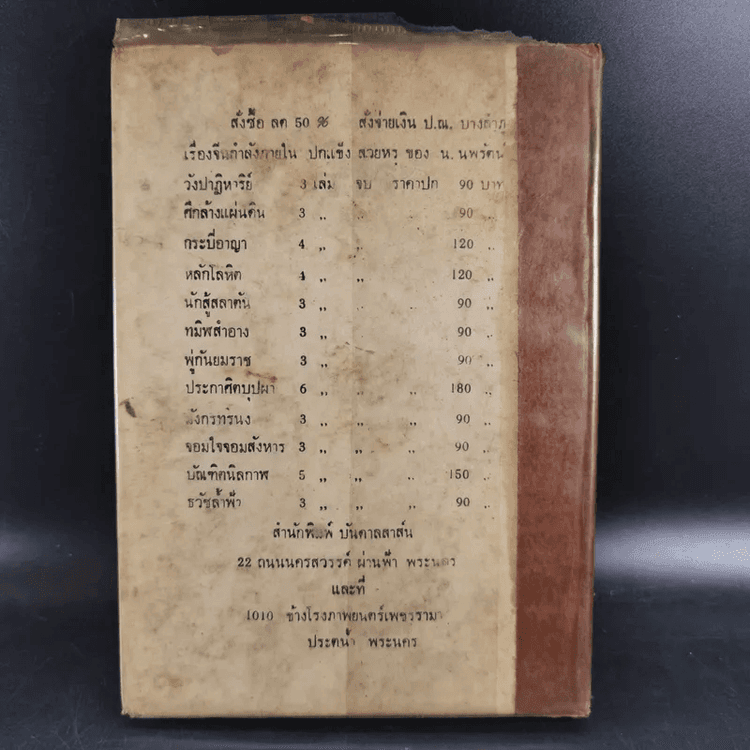 สั่งซื้อ ลด 50 % สั่งจ่ายเงิน ป.ณ. บางลำภู
เรื่องจีนกำลังภายใน ปกแข็ง สวยหรู ของ น. นพรัตน์
วังปาฏิหาริย์ 3 เล่ม จบ ราคาปก 90 บาท
ศึกล้างแผ่นดิน 3 ,, ,, 90 ,,
กระบี่อาญา 4 ,, ,, 120 ,,
หลักโลหิต 4 ,, ,, 120 ,,
นักสู้สลาตัน 3 ,, ,, 90 ,,
ทมิฬสำอาง 3 ,, ,, 90 ,,
พู่กันยมราช 3 ,, 90 ,,
ประกาศิตบุปผา 6 ,, ,, ,, 180 ,,
มังกรทรนง 3 ,, ,, ,, 90 ,,
จอมใจจอมสังหาร 3 ,, ,, ,, 90 ,,
บัณฑิตนิลกาฬ 5 ,, ,, ,, 150 ,,
ธวัชล้ำฟ้า 3 ,, ,, ,, 90 ,,
สำนักพิมพ์ บันดาลสาส์น
22 ถนนนครสวรรค์ ผ่านฟ้า พระนคร
และที่
1010 ข้างโรงภาพยนตร์เพชรรามา
ประตูน้ำ พระนคร